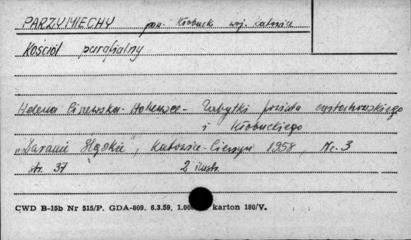 PARZYMIECHY pow. Kłobuck woj. katowice
Kościół parafialny
Helena - Zabytki powiatu częstochowskiego
i Kłobuckiego
"Zaranie Śląskie", Katowice-Cieszyn 1958, Nr. 3
str. 37 2 ilustr.
CWD B-15b Nr 515/P. GDA-809. 6.3.59. 1.00 karton 180/V.